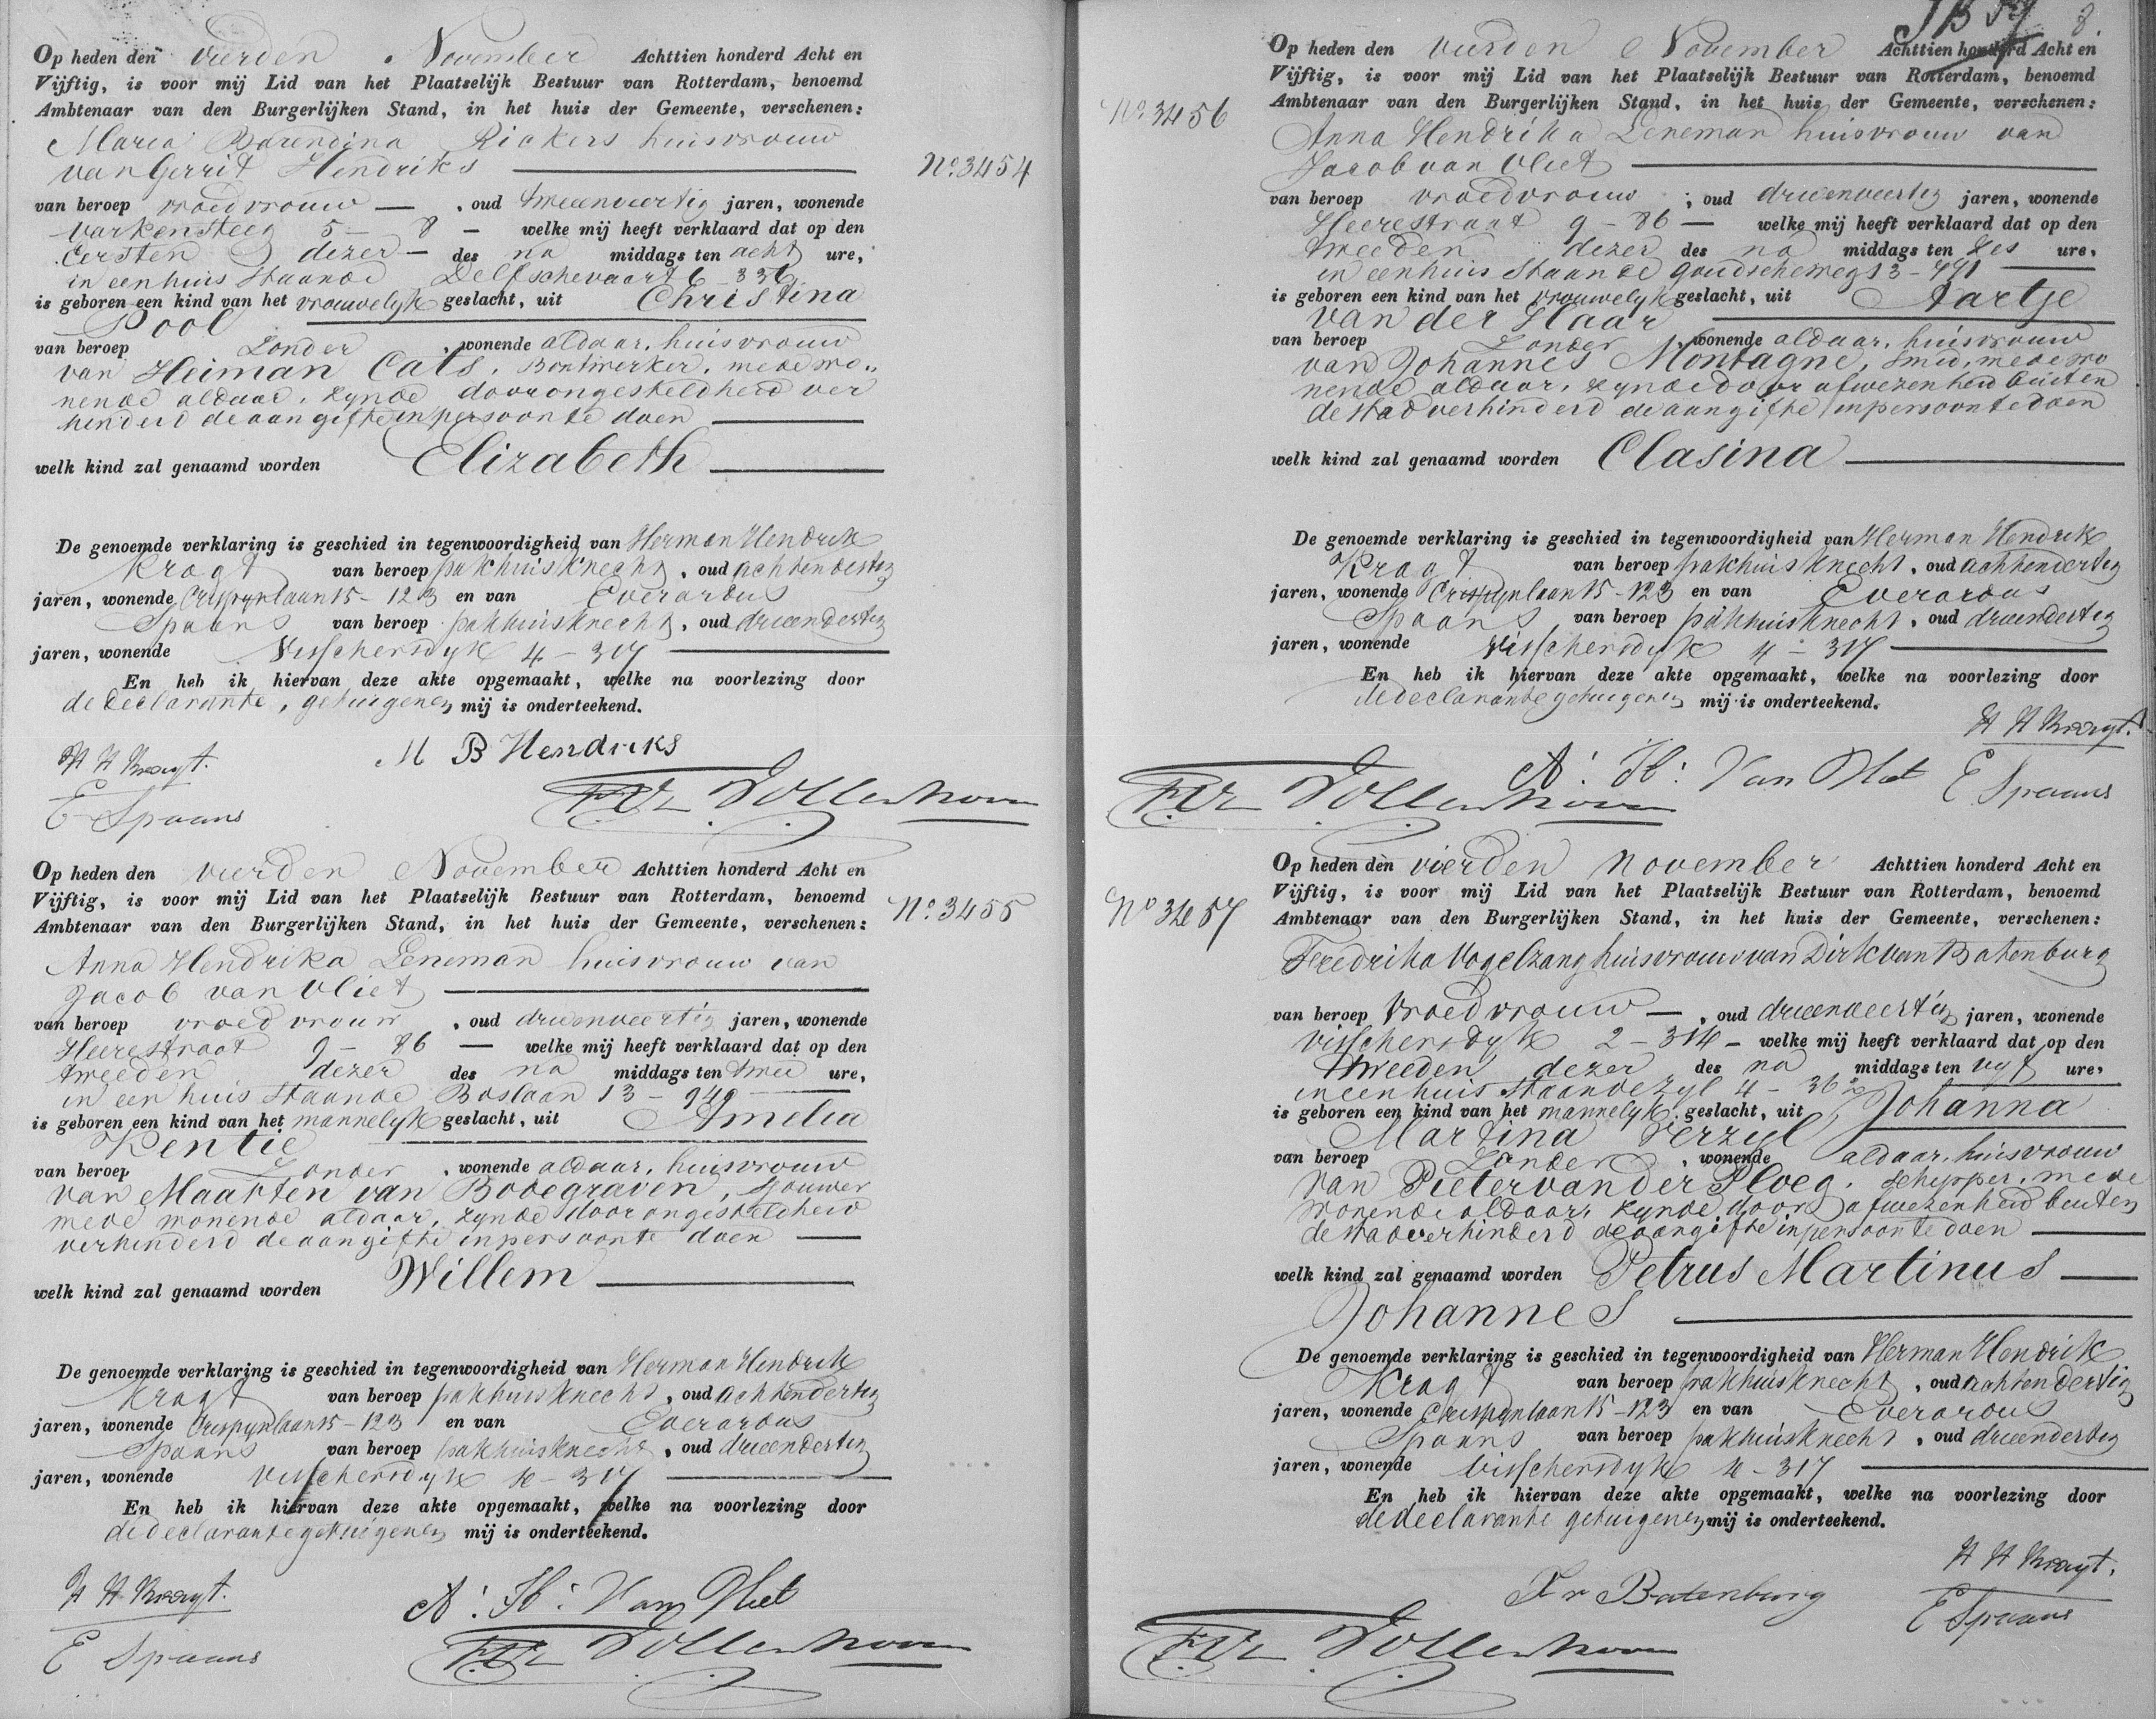 Op heden den vierden November Achttien honderd Acht en
Vijftig, is voor mij Lid van het Plaatselijk Bestuur van Rotterdam, benoemd
Ambtenaar van den Burgerlijken Stand, in het huis der Gemeente, verschenen:
Maria Barendina Riakers huisvrouw
van Gerrit Hendriks
No. 3454
van beroep vroedvrouw , oud tweeenveertig jaren, wonende
Varkensteeg 5 - 8 - welke mij heeft verklaard dat op den
Eersten dezer - des na middags ten acht ure,
in een huis staande Delftschevaart 6 - 336
is geboren een kind van het vrouwelyk geslacht, uit Christina
Pool
van beroep Zonder , wonende aldaar, huisvrouw
van Heiman Cats, Bontwerker, mede wo„
nende aldaar, zynde door ongesteldheid ver
hinderd de aangifte in persoon te doen
welk kind zal genaamd worden Elizabeth
De genoemde verklaring is geschied in tegenwoordigheid van Herman Hendrik
Kragt van beroep pakhuisknecht , oud achtendertig
jaren, wonende Crispynlaan 15 - 123 en van Everardus
Spaans van beroep pakhuisknecht , oud drieendertig
jaren, wonende Visschersdyk 4 - 317
En heb ik hiervan deze akte opgemaakt, welke na voorlezing door
de declarante, getuigen en mij is onderteekend.
H H Kragt.
M B Hendriks
E Spaans
Op heden den vierden November Achttien honderd Acht en
Vijftig, is voor mij Lid van het Plaatselijk Bestuur van Rotterdam, benoemd
No. 3455
Ambtenaar van den Burgerlijken Stand, in het huis der Gemeente, verschenen:
Anna Hendrika Leneman huisvrouw van
Jacob van Vliet
van beroep vroedvrouw , oud drieenveertig jaren, wonende
Heerestraat 9 - 86 - welke mij heeft verklaard dat op den
tweeden dezer des na middags ten twee ure,
in een huis staande Boslaan 13 - 940
is geboren een kind van het mannelyk geslacht, uit Amelia
Kentie
van beroep Zonder , wonende aldaar, huisvrouw
van Maarten van Bodegraven, sjouwer
mede wonende aldaar, zynde door ongesteldheid
verhinderd de aangifte in persoon te doen
welk kind zal genaamd worden Willem
De genoemde verklaring is geschied in tegenwoordigheid van Herman Hendrik
Kragt van beroep pakhuisknecht , oud achtendertig
jaren, wonende Crispynlaan 15 - 123 en van Everardus
Spaans van beroep pakhuisknecht , oud drieendertig
jaren, wonende Visschersdyk 4 - 317
En heb ik hiervan deze akte opgemaakt, welke na voorlezing door
de declarante getuigen en mij is onderteekend.
H H Kragt.
A: H: Van Vliet
E Spaans
Op heden den vierden November Achttien honderd Acht en
Vijftig, is voor mij Lid van het Plaatselijk Bestuur van Rotterdam, benoemd
No. 3456
Ambtenaar van den Burgerlijken Stand, in het huis der Gemeente, verschenen:
Anna Hendrika Leneman huisvrouw van
Jacob van Vliet
van beroep vroedvrouw ; oud drieenveertig jaren, wonende
Heerestraat 9 - 86 - welke mij heeft verklaard dat op den
tweeden dezer des na middags ten zes ure,
in een huis staande Goudscheweg 13 - 771
is geboren een kind van het vrouwelyk geslacht, uit Aartje
van der Haar
van beroep Zonder , wonende aldaar, huisvrouw
van Johannes Montagne, smid, mede wo
nende aldaar, zynde door afwezenheid buiten
de stad verhinderd de aangifte in persoon te doen
welk kind zal genaamd worden Clasina
De genoemde verklaring is geschied in tegenwoordigheid van Herman Hendrik
Kragt van beroep pakhuisknecht , oud achtendertig
jaren, wonende Crispynlaan 15 - 123 en van Everardus
Spaans van beroep pakhuisknecht , oud drieendertig
jaren, wonende Visschersdyk 4 - 317
En heb ik hiervan deze akte opgemaakt, welke na voorlezing door
de declarante getuigen en mij is onderteekend.
H H Kragt.
A: H: Van Vliet
E Spaans
Op heden den vierden november Achttien honderd Acht en
Vijftig, is voor mij Lid van het Plaatselijk Bestuur van Rotterdam, benoemd
No 3457
Ambtenaar van den Burgerlijken Stand, in het huis der Gemeente, verschenen:
Fredrika Vogelzang huisvrouw van Dirk van Batenburg
van beroep Vroedvrouw - , oud drieenveertig jaren, wonende
Visschersdyk 2 - 314 - welke mij heeft verklaard dat op den
tweeden dezer des na middags ten vyf ure,
in een huis staande Zyl 4 - 36
is geboren een kind van het mannelyk geslacht, uit Johanna
Martina Verzyl
van beroep Zonder , wonende aldaar, huisvrouw
van Pieter van der Ploeg, schipper, mede
wonende aldaar, zynde door afwezenheid buiten
de stad verhinderd de aangifte in persoon te doen
welk kind zal genaamd worden Petrus Martinus
Johannes
De genoemde verklaring is geschied in tegenwoordigheid van Herman Hendrik
Kragt van beroep pakhuisknecht , oud achtendertig
jaren, wonende Crispynlaan 15 - 123 en van Everardus
Spaans van beroep pakhuisknecht , oud drieendertig
jaren, wonende Visschersdyk 4 - 317
En heb ik hiervan deze akte opgemaakt, welke na voorlezing door
de declarante getuigen en mij is onderteekend.
H H Kragt.
F v Batenburg
E Spaans